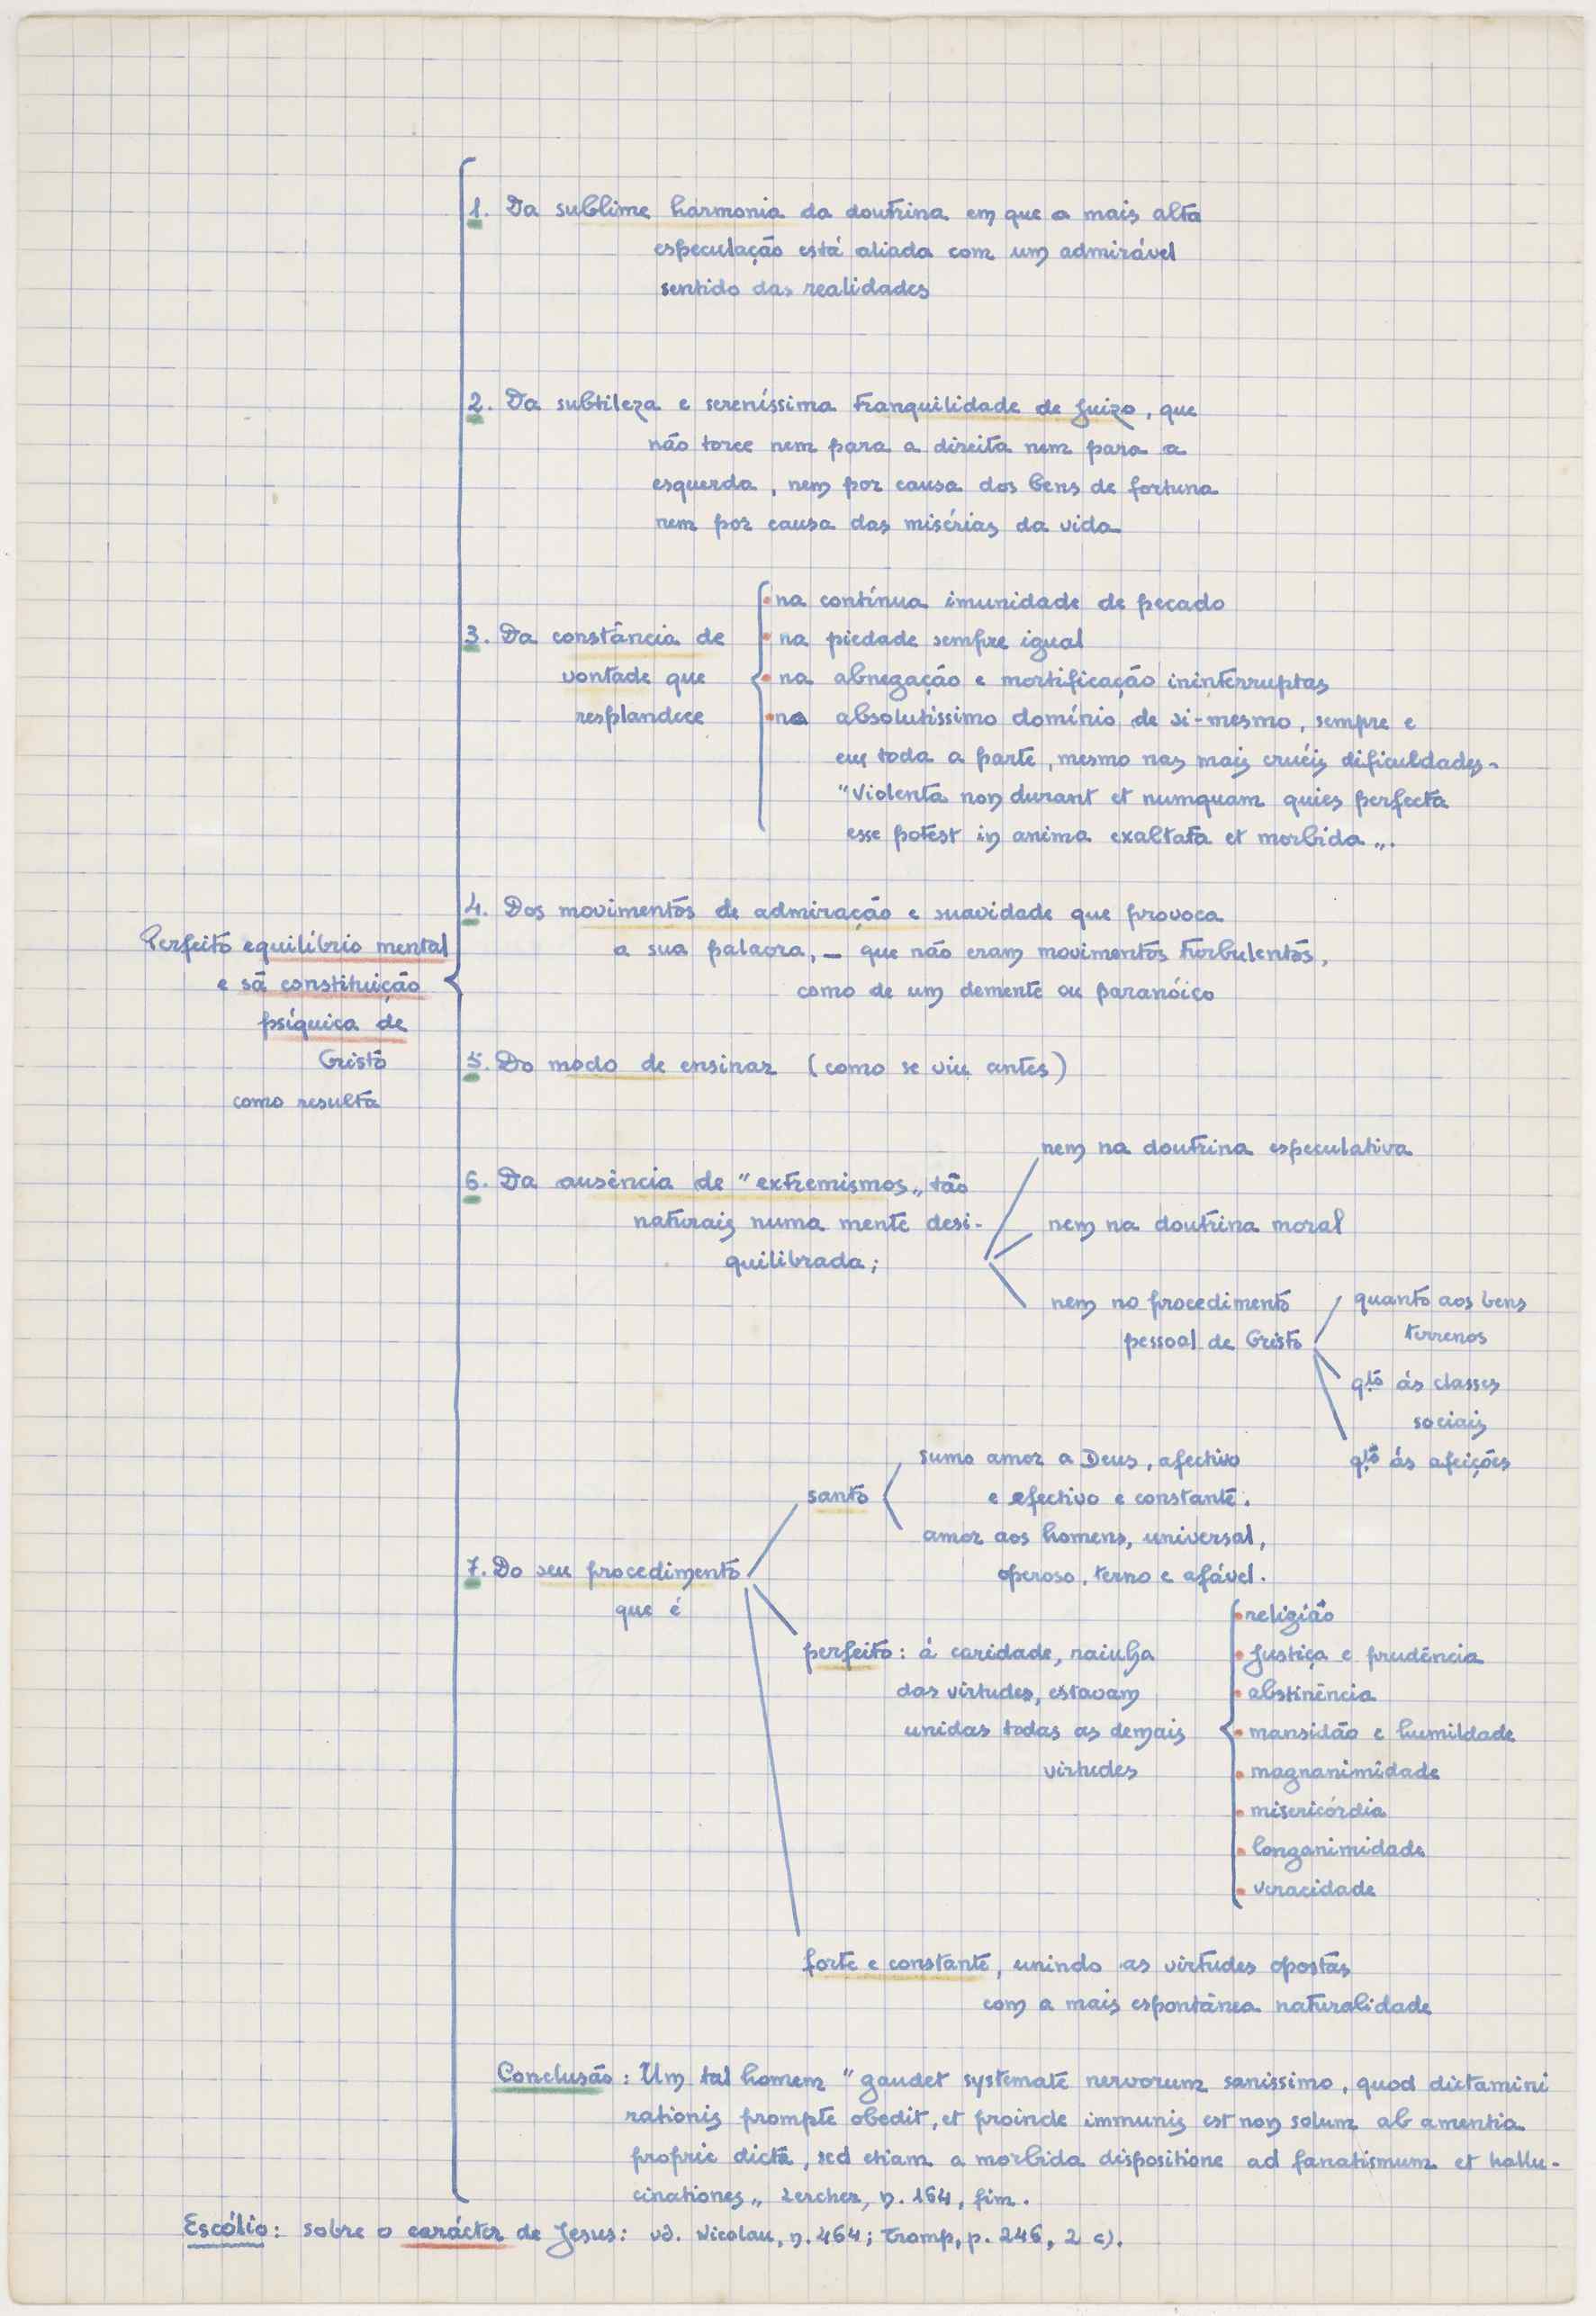 1. Da sublime harmonia da doutrina em que a mais alta
especulação está aliada com um admirável
sentido das realidades
2. Da subtileza e sereníssima tranquilidade de juizo, que
não torce nem para a direita nem para a
esquerda, nem por causa dos bens de fortuna
nem por causa das misérias da vida
3. Da constância de
vontade que
resplandece
na contínua imunidade de pecado
na piedade sempre igual
na abnegação e mortificação ininterruptas
no absolutíssimo domínio de si-mesmo, sempre e
em toda a parte, mesmo nas mais cruéis dificuldades-
"Violenta non durant et numquam quies perfecta
esse potest in anima exaltata et morbida„.
Perfeito equilíbrio mental
e sã constituição
psíquica de
Cristo
como resulta
4. Dos movimentos de admiração e suavidade que provoca
a sua palavra, – que não eram movimentos turbulentos,
como de um demente ou paranóico
5. Do modo de ensinar (como se viu antes)
6. Da ausência de "extremismos„ tão
naturais numa mente desi-
quilibrada;
nem na doutrina especulativa
nem na doutrina moral
nem no procedimento
pessoal de Cristo
quanto aos bens
terrenos
qto às classes
sociais
qto às afeições
7. Do seu procedimento
que é
santo
sumo amor a Deus, afectivo
e efectivo e constante.
amor aos homens, universal,
operoso, terno e afável.
perfeito: à caridade, rainha
das virtudes, estavam
unidas todas as demais
virtudes
religião
justiça e prudência
abstinência
mansidão e humildade
magnanimidade
misericórdia
longanimidade
veracidade
forte e constante, unindo as virtudes opostas
com a mais espontânea naturalidade
Conclusão: Um tal homem "gaudet systemate nervorum sanissimo, quod dictamini
rationis prompte obedit, et proinde immunis est non solum ab amentia
proprie dicta, sed etiam a morbida dispositione ad fanatismum et hallu-
cinationes„ Lercher, n. 164, fim.
Escólio: sobre o carácter de Jesus: vd. Nicolau, n. 464; Tromp, p. 246, 2 c).